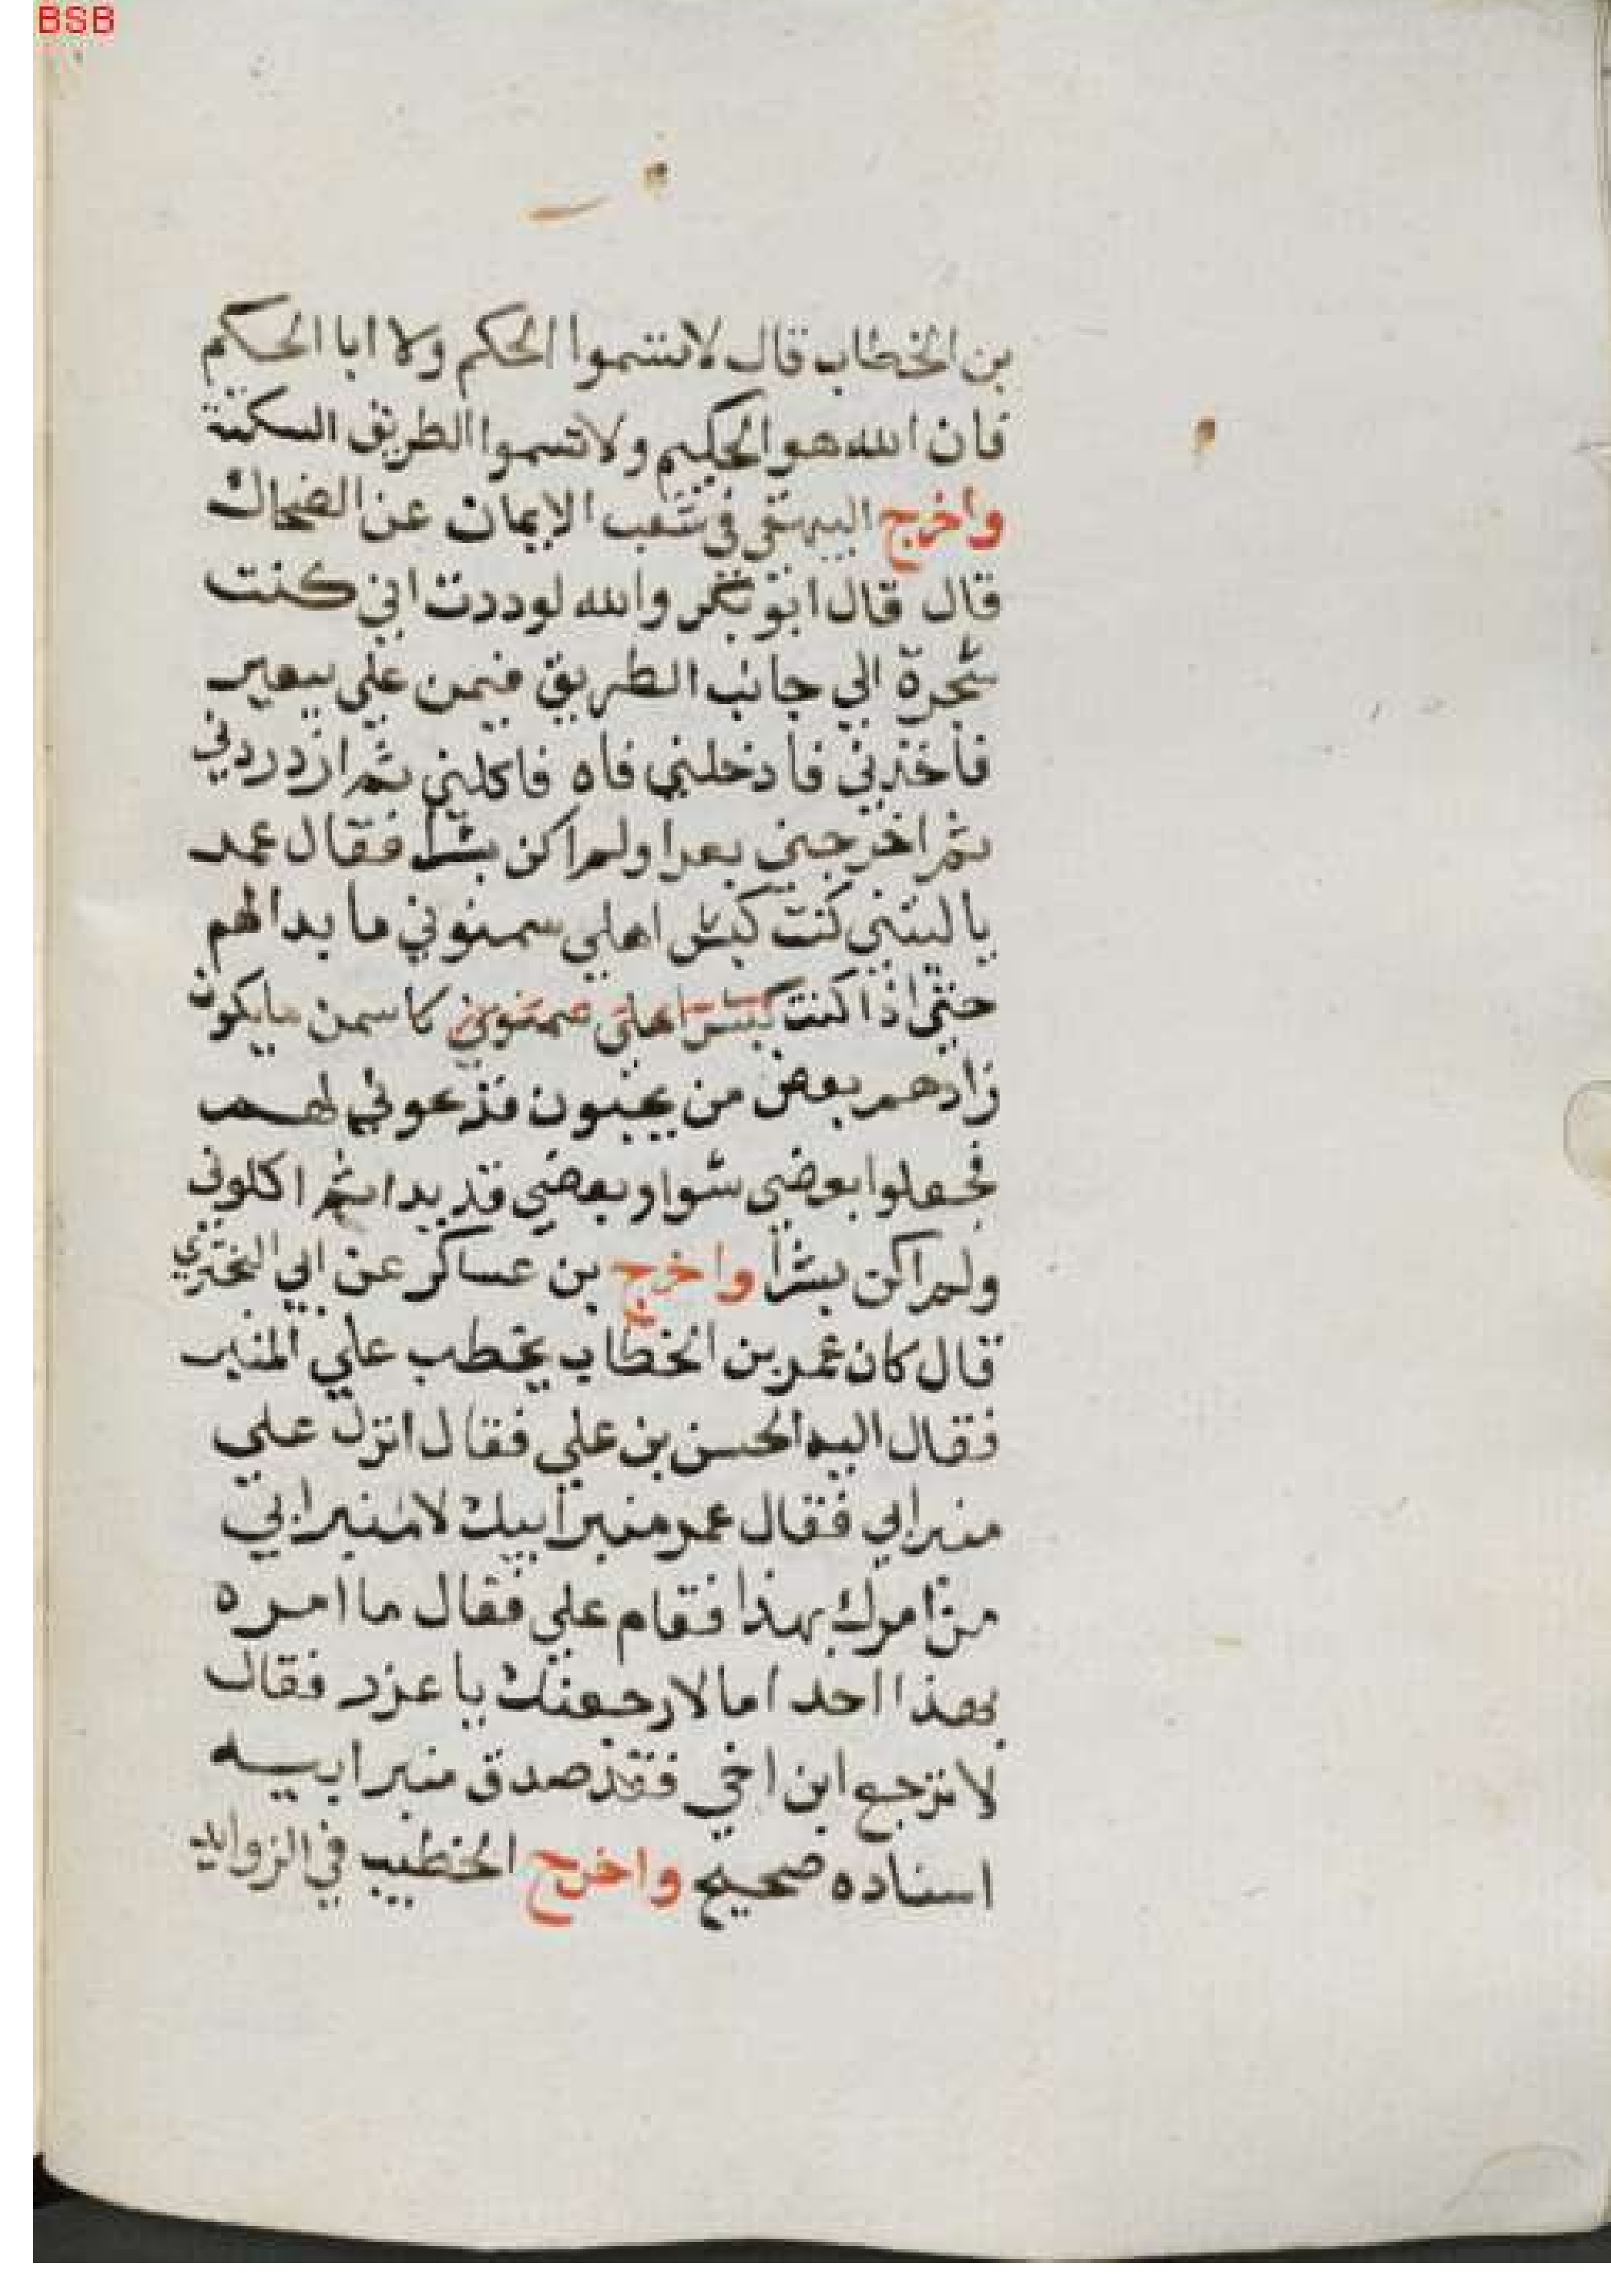 BSB
بن الخطاب قال لا تسموا الحكم ولا ابا الحكم
فان الله هو الحكيم ولا تسموا الطريق السكنة
واخرج البيهقي في شعب الايمان عن الضحاك
قال قال ابو بكر والله لوددت اني كنت
شجرة الي جانب الطريق فيمن علي بيعير
فأخذني فأدخلني فاه فاكلني ثم ازدردني
ثم اخرجني بعرا ولم اكن بشرا فقال عمر
يا ليتني كنت كبش اهلي سمنوني ما بدا لهم
حتى اذا كنت كبش اهلي سمنوني كاسمن مايكون
زادهم بعض من يحبون فذبحوني لهم
فجعلوا بعضي شوا وبعضي قديدا ثم اكلوني
ولم اكن بشرا واخرج بن عساكر عن ابي البختري
قال كان عمر بن الخطاب يخطب علي المنبر
فقال اليه الحسن بن علي فقال انزل علي
منبر ابي فقال عمر منبر أبيك لا منبر ابي
من امرك بهذا فقام علي فقال ما امره
بهذا احد اما لارجعنك يا عزر فقال
لا ترجع ابن اخي فقد صدق منبر ابيه
اسناده صحيح واخرج الخطيب في الزوايد